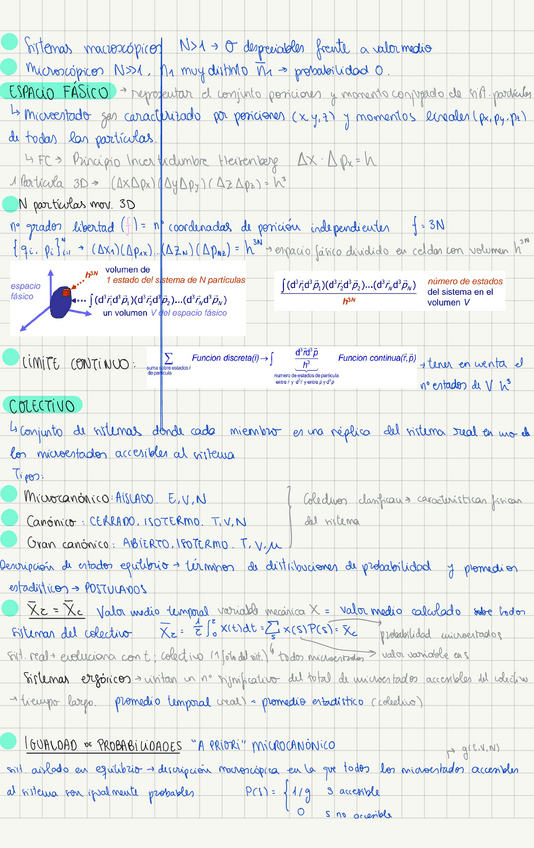 Sistemas macroscópicos N>>1 → σ despreciables frente a valor medio
Microscópicos N>>1, n₁ muy distinto n̄₁ → probabilidad 0.
ESPACIO FÁSICO → representar el conjunto posiciones y momento conjugado de sist. partículas
↳ Microestado gas caracterizado por posiciones (x, y, z) y momentos lineales (px, py, pz)
de todas las partículas.
↳ FC → Principio Incertidumbre Heisenberg Δx · Δpx = h
1 Partícula 3D → (ΔxΔpx)(ΔyΔpy)(ΔzΔpz) = h³
N partículas mov. 3D
nº grados libertad (f) = nº coordenadas de posición independientes f = 3N
{qi, pi} → (Δx₁)(Δpx₁)..(ΔzN)(ΔpNz) = h³ᴺ → espacio fásico dividido en celdas con volumen h³ᴺ
espacio fásico
h³ᴺ
volumen de
1 estado del sistema de N partículas
∫(d³r₁d³p₁)(d³r₂d³p₂)...(d³rNd³pN)
un volumen V del espacio fásico
∫(d³r₁d³p₁)(d³r₂d³p₂)...(d³rNd³pN)
h³ᴺ
número de estados
del sistema en el
volumen V
LÍMITE CONTINUO: Σ Funcion discreta(i) → ∫ d³r d³p / h³ Funcion continua(r, p) → tener en cuenta el
suma sobre estados i
de partícula
número de estados de partícula
entre r y d³r y entre p y d³p
nº estados de V h³
COLECTIVO
↳ Conjunto de sistemas donde cada miembro es una réplica del sistema real en uno de
los microestados accesibles al sistema
Tipos:
Microcanónico: AISLADO. E, V, N
Canónico: CERRADO, ISOTERMO. T, V, N
Gran canónico: ABIERTO, ISOTERMO. T, V, μ
Colectivos clasifican → características físicas
del sistema
Descripción de estados equilibrio → términos de distribuciones de probabilidad y promedios
estadísticos → POSTULADOS
X̄τ = X̄c Valor medio temporal variable mecánica X = valor medio calculado sobre todos
sistemas del colectivo X̄τ = 1/τ ∫₀^τ x(t)dt = Σ x(s) P(s) = X̄c
probabilidad microestados
sist. real → evoluciona con t; colectivo (1 foto del sist.) todos microestados → valor variable en s
Sistemas ergódicos → visitan un nº significativo del total de microestados accesibles del colectivo
→ tiempo largo. promedio temporal (real) = promedio estadístico (colectivo)
IGUALDAD DE PROBABILIDADES "A PRIORI" MICROCANÓNICO
g(E, V, N)
sist. aislado en equilibrio → descripción macroscópica en la que todos los microestados accesibles
al sistema son igualmente probables P(s) = { 1/g s accesible
0 s no accesible